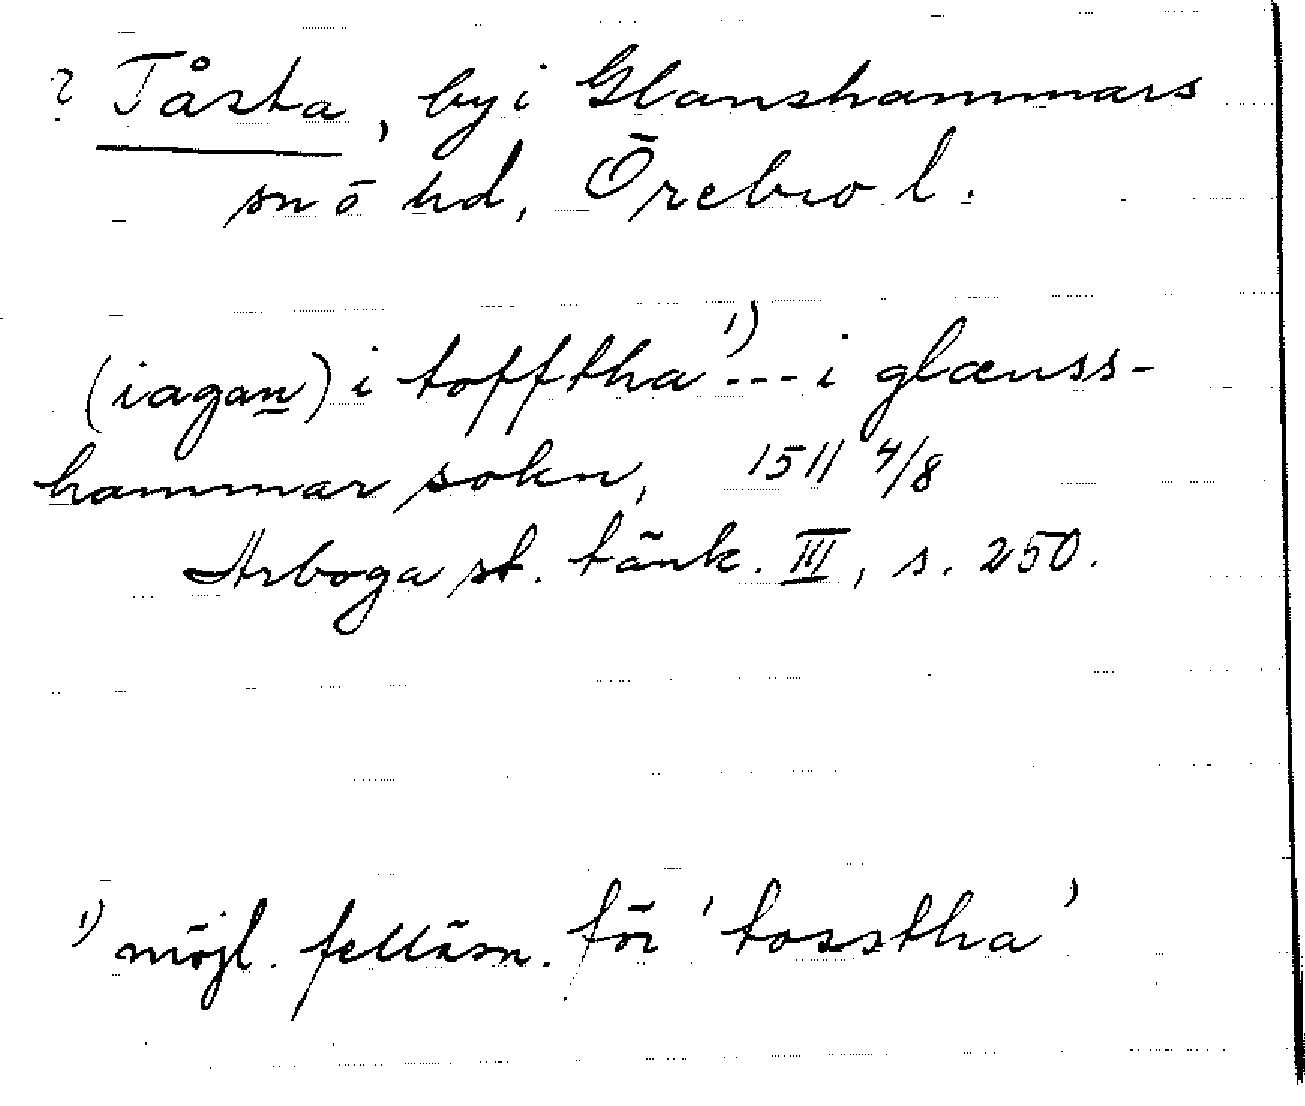 ? Tåsta, by i Glanshammars
sn ō hd, Örebro l.
(iagan) i tofftha ¹⁾ --- i glænss-
hammar sokn, 1511 4/8
Arboga st. tänk. III, s. 250.
¹⁾ möjl. felläsn. för 'tosstha'